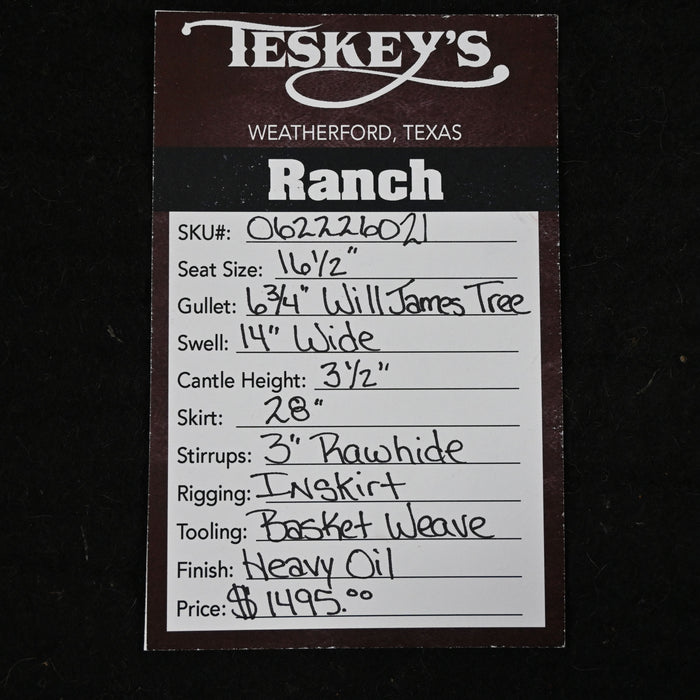 TESKEY'S
WEATHERFORD, TEXAS
Ranch
SKU#: 062226021
Seat Size: 16 1/2"
Gullet: 6 3/4" Will James Tree
Swell: 14" Wide
Cantle Height: 3 1/2"
Skirt: 28"
Stirrups: 3" Rawhide
Rigging: Inskirt
Tooling: Basket Weave
Finish: Heavy Oil
Price: $1495.00